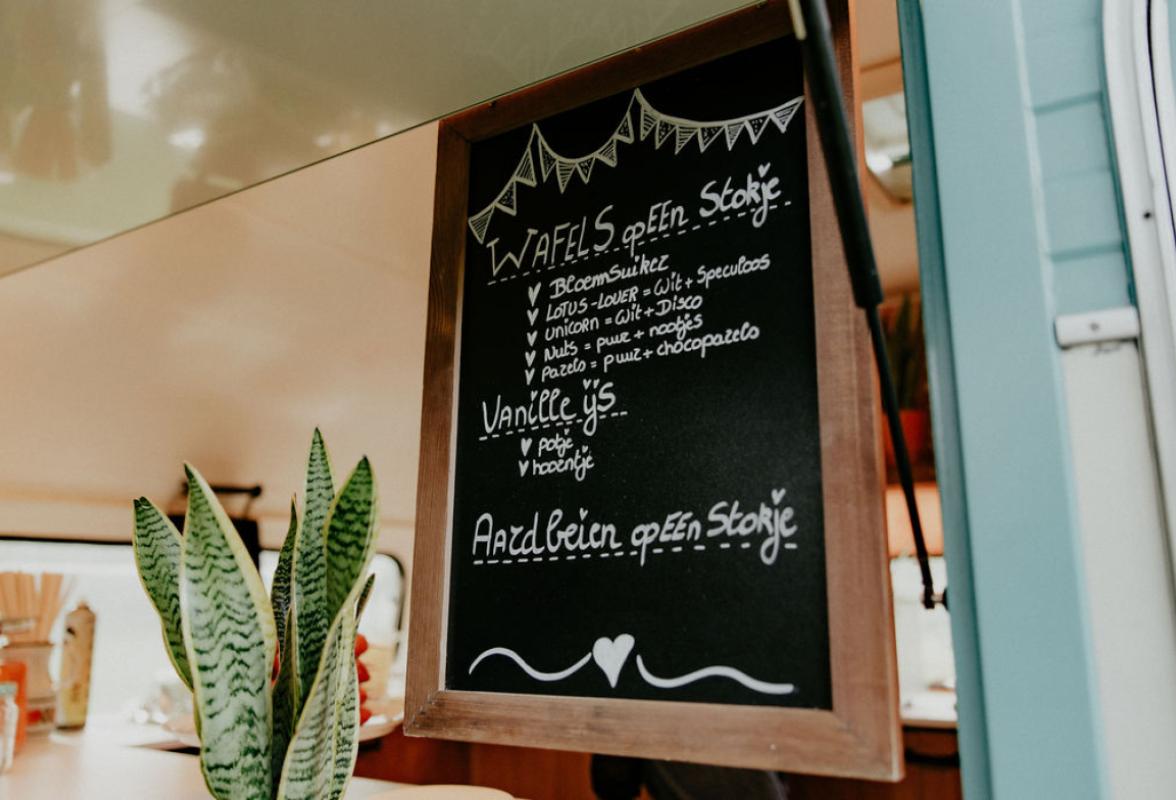 WAFELS opEEn Stokje
BloemSuiker
LOTUS-LOVER = Wit + Speculoos
UNICORN = Wit + Disco
Nuts = puur + nootjes
Parels = puur + chocoparels
Vanille ijs
potje
hoorntje
Aardbeien opEEn Stokje